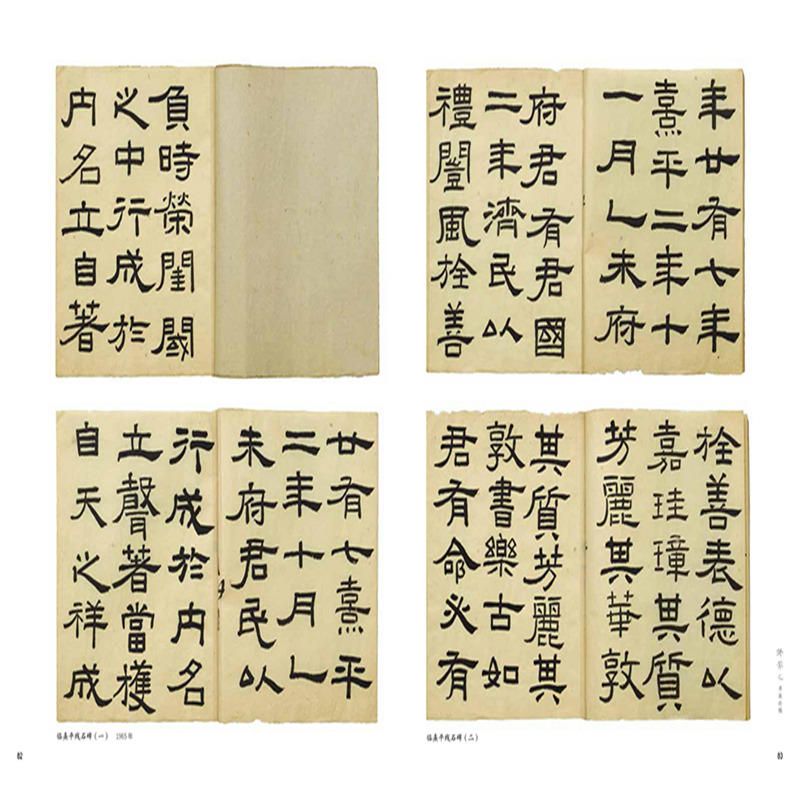 負時榮閨閾
之中行成於
内名立自著
廿有七熹平
二年十月乙
未府君民以
行成於内名
立聲著當獲
自天之祥成
临熹平残石碑（一） 1965年
82
年廿有七年
熹平二年十
一月乙未府
府君有君國
二年濟民以
禮闓風拴善
拴善表德以
嘉珪璋其質
芳麗其華敦
其質芳麗其
敦書樂古如
君有命必有
临熹平残石碑（二）
83